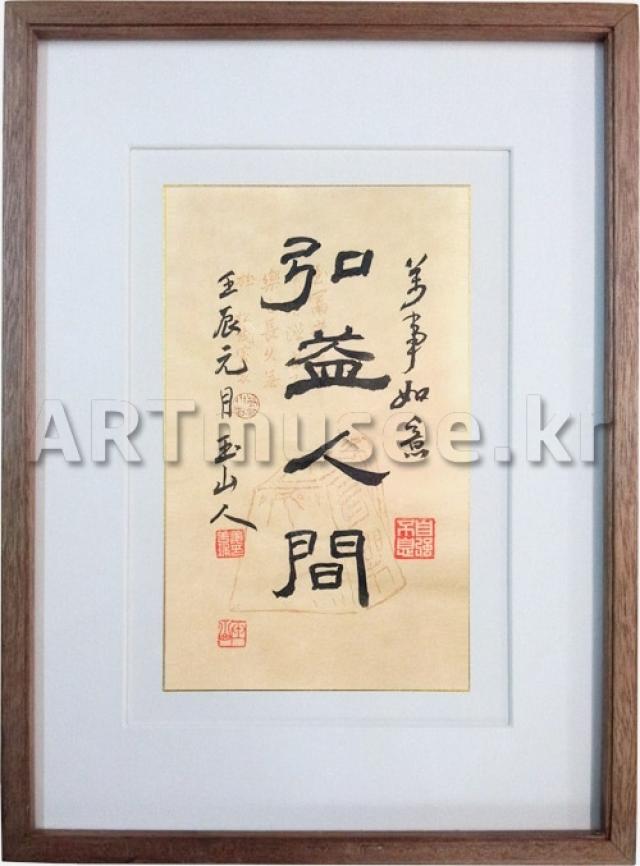 萬事如意
弘益人間
壬辰元月玉山人
自强不息
ARTmusee.kr